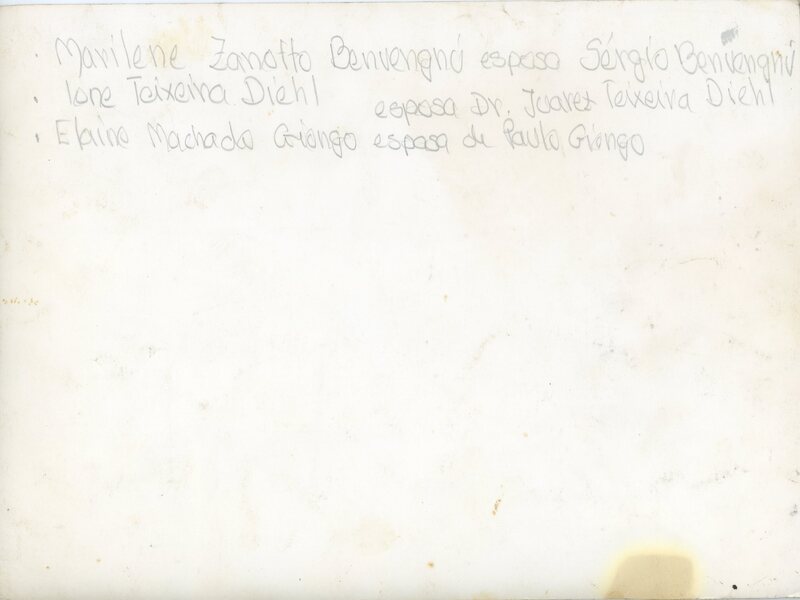 · Marilene Zanotto Benvengnú esposa Sérgio Benvengnú
· Ione Teixeira Diehl esposa Dr. Juarez Teixeira Diehl
· Elaine Machado Giongo esposa de Paulo Giongo